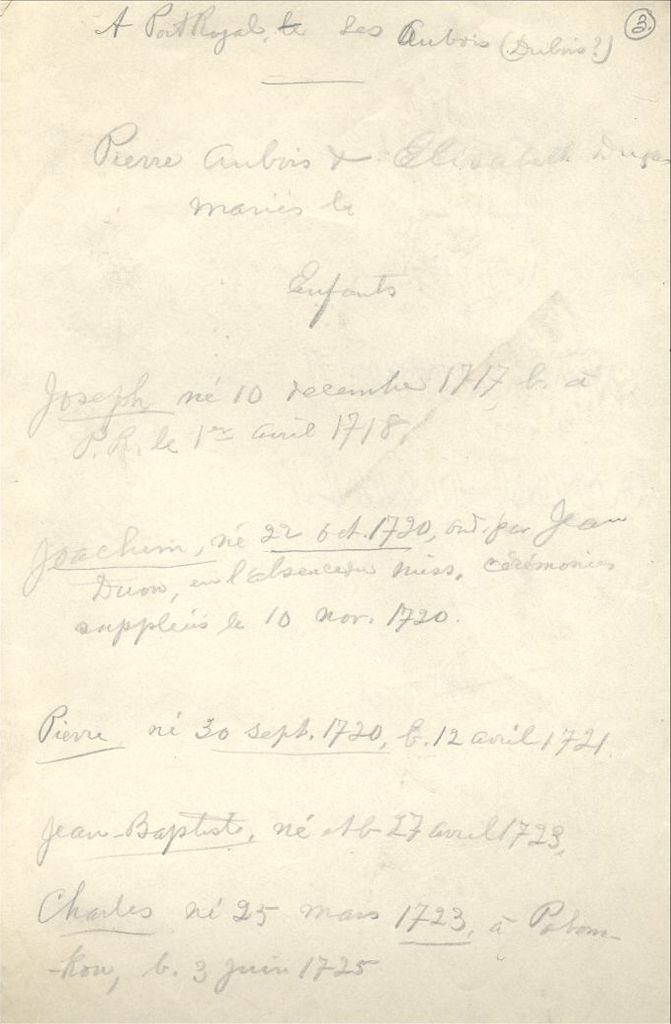 A Port Royal, le Les Aubois (Dubois?) 3.
Pierre Aubois & Elisabeth Dugas
mariés le
Enfants
Joseph né 10 decembre 1717, b. à
P.R. le 1er avril 1718,
Joachim, né 22 oct. 1720, ond. par Jean
Duon, en l'absence du miss. cérémonies
suppléés le 10 nov. 1720.
Pierre né 30 sept. 1720, b. 12 avril 1721.
Jean-Baptiste, né et b 27 avril 1723,
Charles né 25 mars 1723, à Pobom-
-kou, b. 3 juin 1725